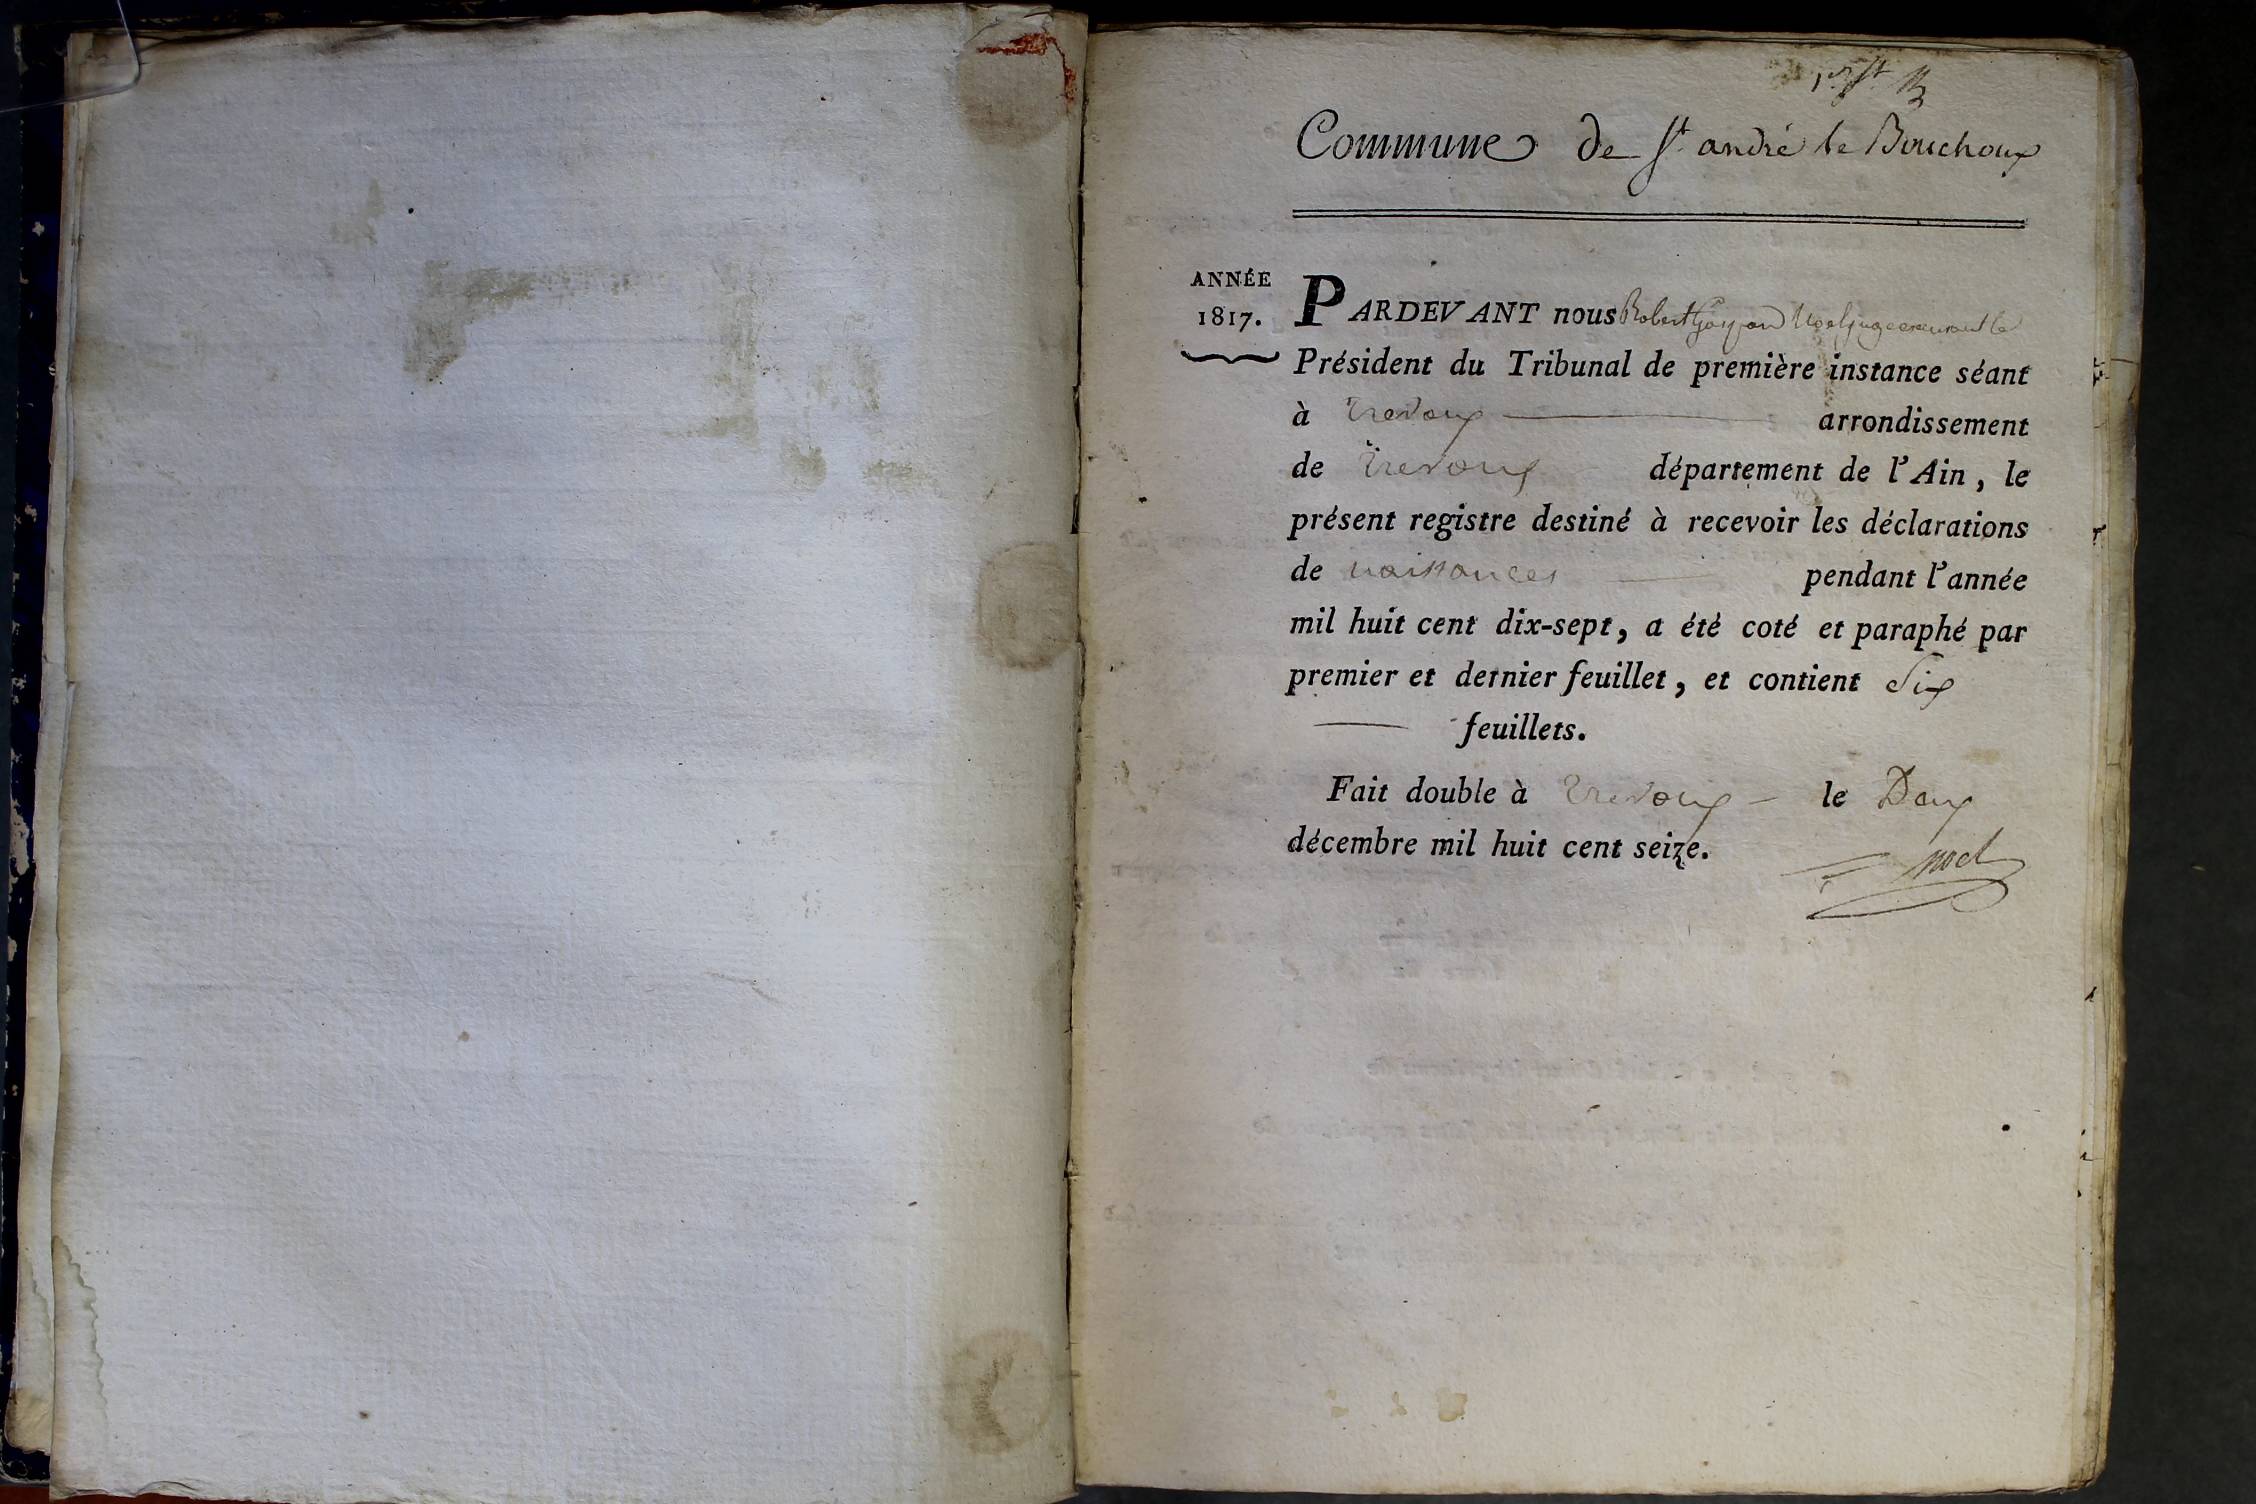 1er ft
Commune de St andré le Bouchoux
ANNÉE
1817.
PARDEVANT nous Robert Noel juge
Président du Tribunal de première instance séant
à Trevoux arrondissement
de Trevoux département de l'Ain, le
présent registre destiné à recevoir les déclarations
de naissances pendant l'année
mil huit cent dix-sept, a été coté et paraphé par
premier et dernier feuillet, et contient Six
feuillets.
Fait double à Trevoux le Deux
décembre mil huit cent seize.
noel